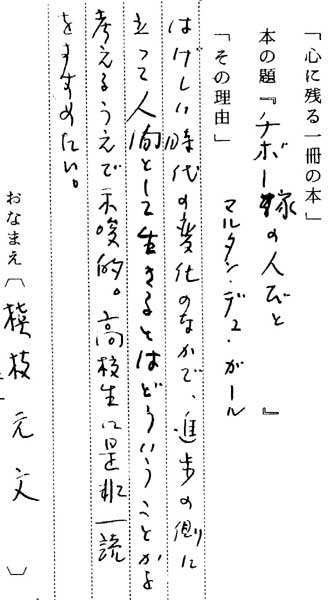 「心に残る一冊の本」
本の題『チボー家の人びと』
マルタン・デュ・ガール
「その理由」
はげしい時代の変化のなかで、進歩の側に
立って人間として生きるとはどういうことかを
考えるうえで示唆的。高校生に是非一読
をすすめたい。
おなまえ〔横枝 元文〕